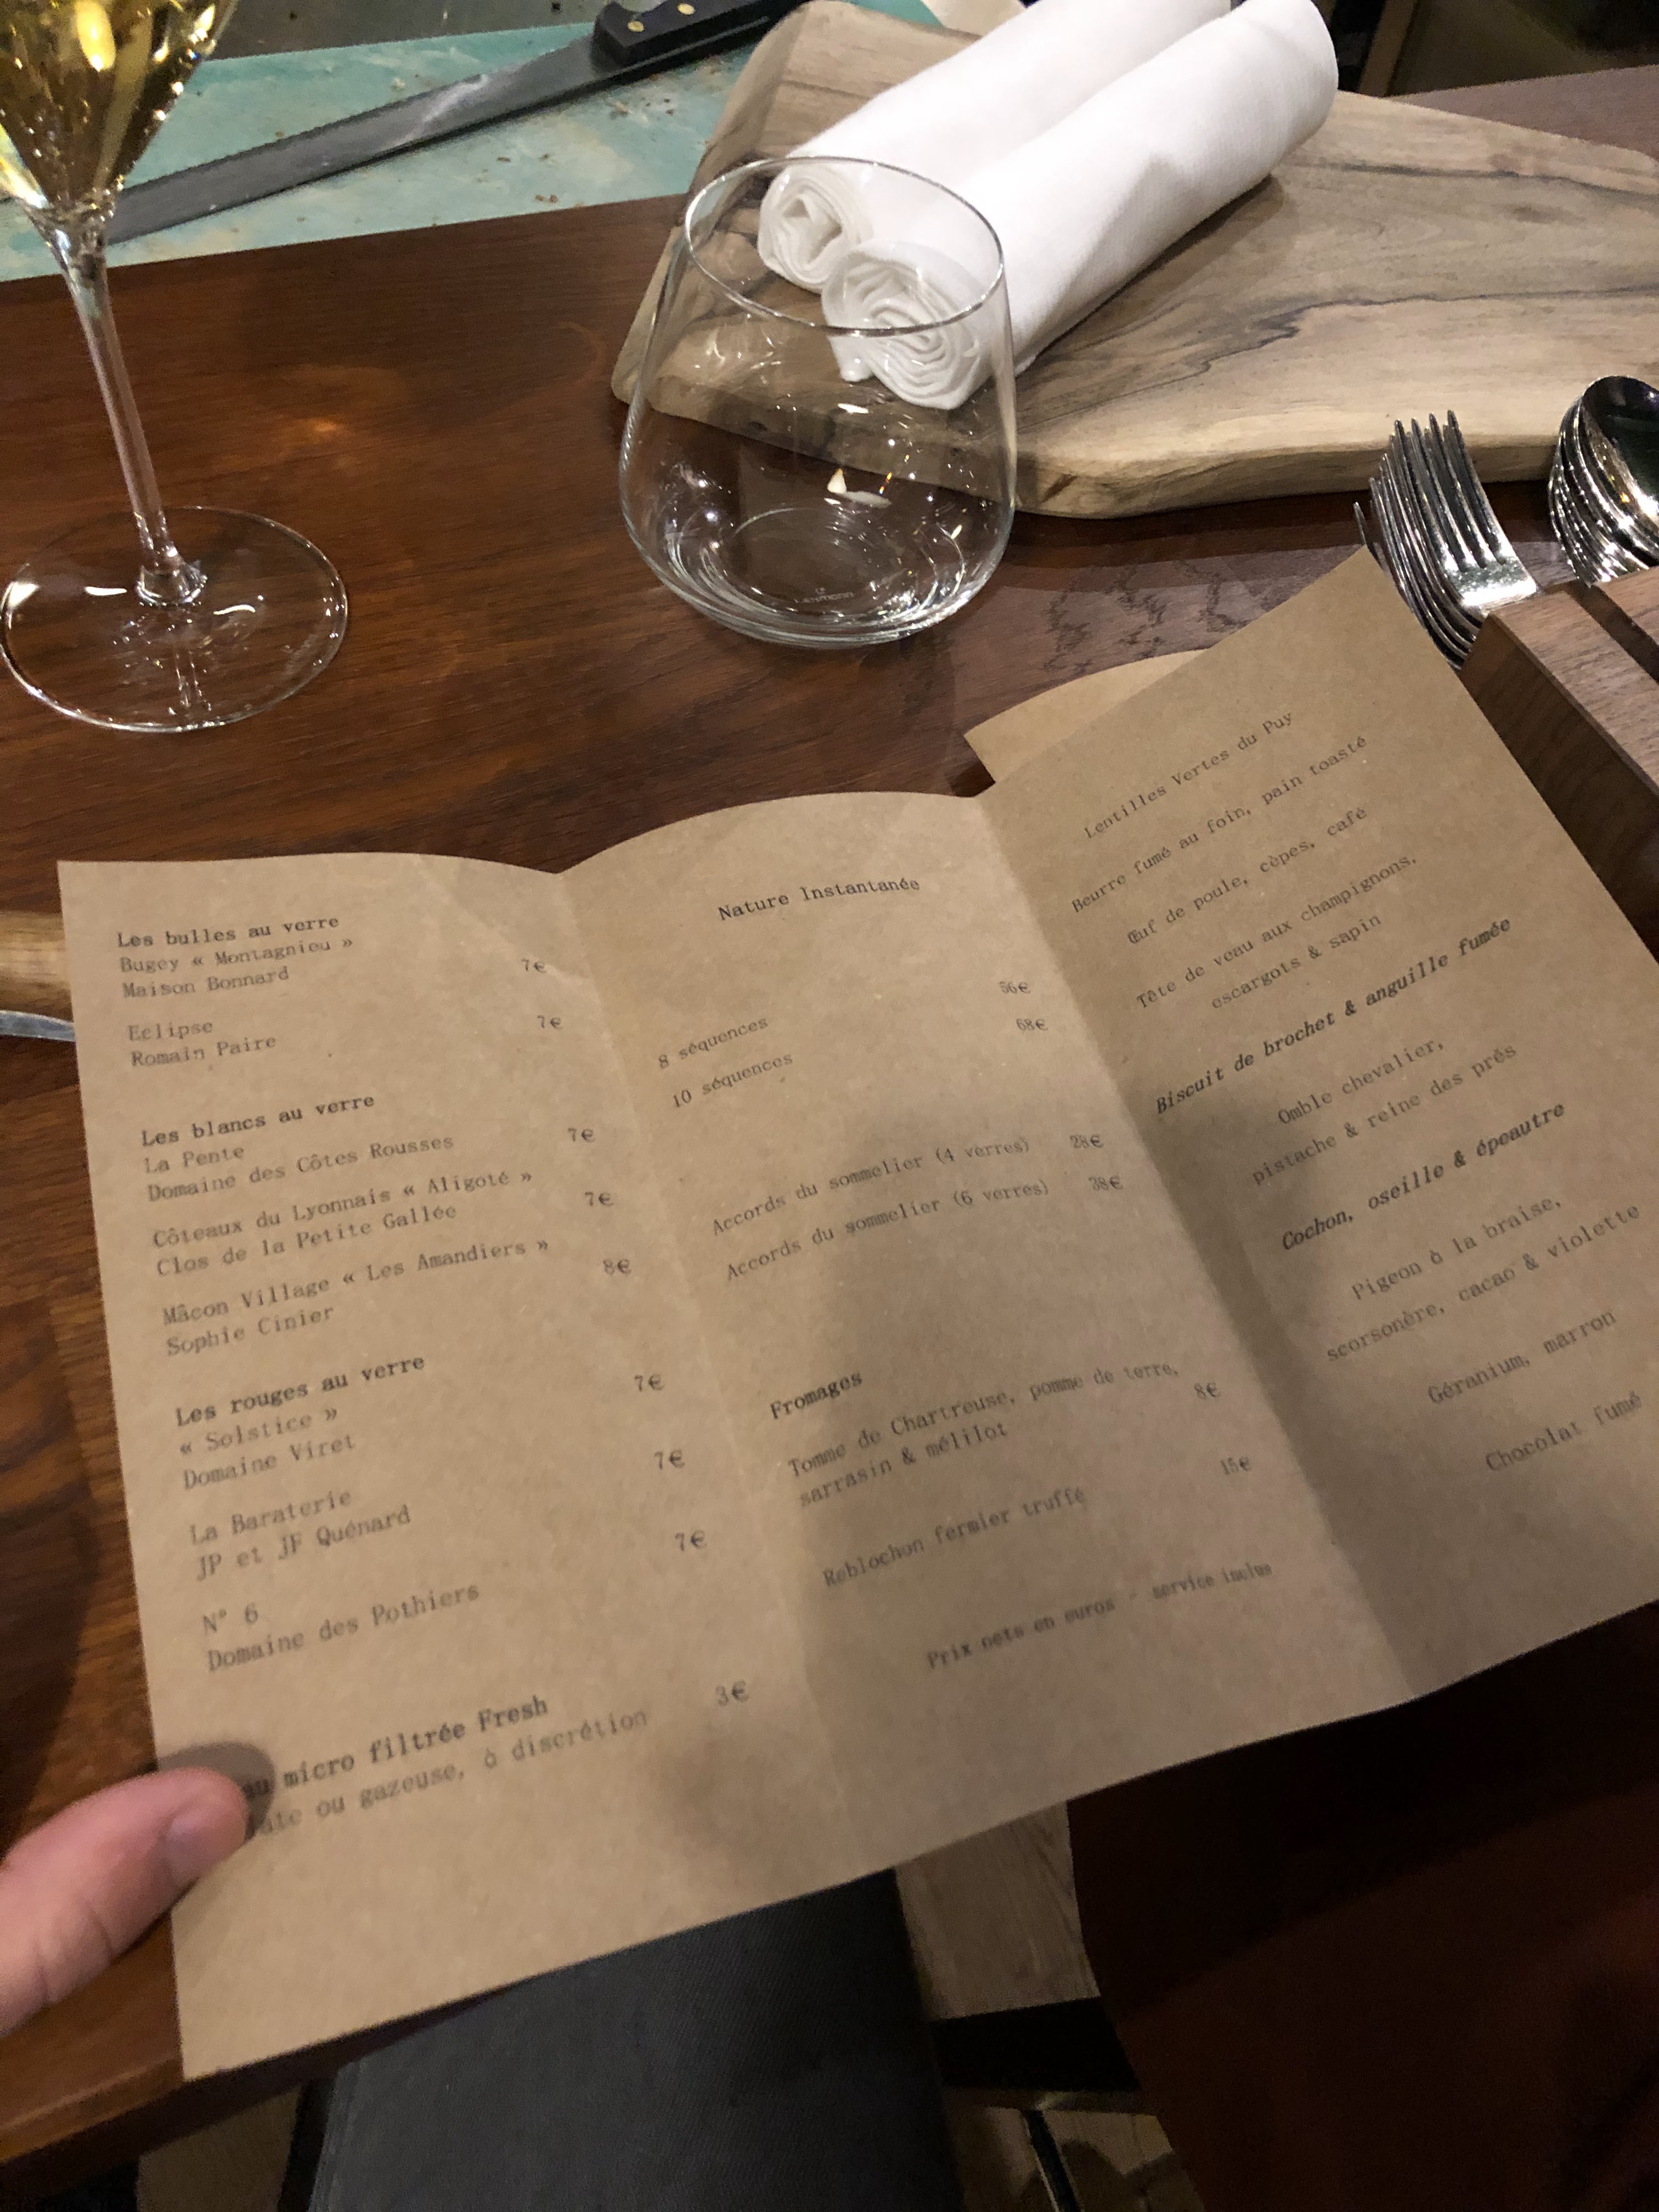 Les bulles au verre
Bugey « Montagnieu »
Maison Bonnard 7€
Eclipse 7€
Romain Paire
Les blancs au verre
La Pente 7€
Domaine des Côtes Rousses
Côteaux du Lyonnais « Aligoté » 7€
Clos de la Petite Gallée
Mâcon Village « Les Amandiers » 8€
Sophie Cinier
Les rouges au verre
« Solstice » 7€
Domaine Viret
La Baraterie 7€
JP et JF Quénard
N° 6 7€
Domaine des Pothiers
micro filtrée Fresh 3€
ou gazeuse, à discrétion
Nature Instantanée
8 séquences 56€
10 séquences 68€
Accords du sommelier (4 verres) 28€
Accords du sommelier (6 verres) 38€
Fromages
Tomme de Chartreuse, pomme de terre, 8€
sarrasin & mélilot
Reblochon fermier truffé 15€
Prix nets en euros - service inclus
Lentilles Vertes du Puy
Beurre fumé au foin, pain toasté
Œuf de poule, cèpes, café
Tête de veau aux champignons,
escargots & sapin
Biscuit de brochet & anguille fumée
Omble chevalier,
pistache & reine des prés
Cochon, oseille & épeautre
Pigeon à la braise,
scorsonère, cacao & violette
Géranium, marron
Chocolat fumé